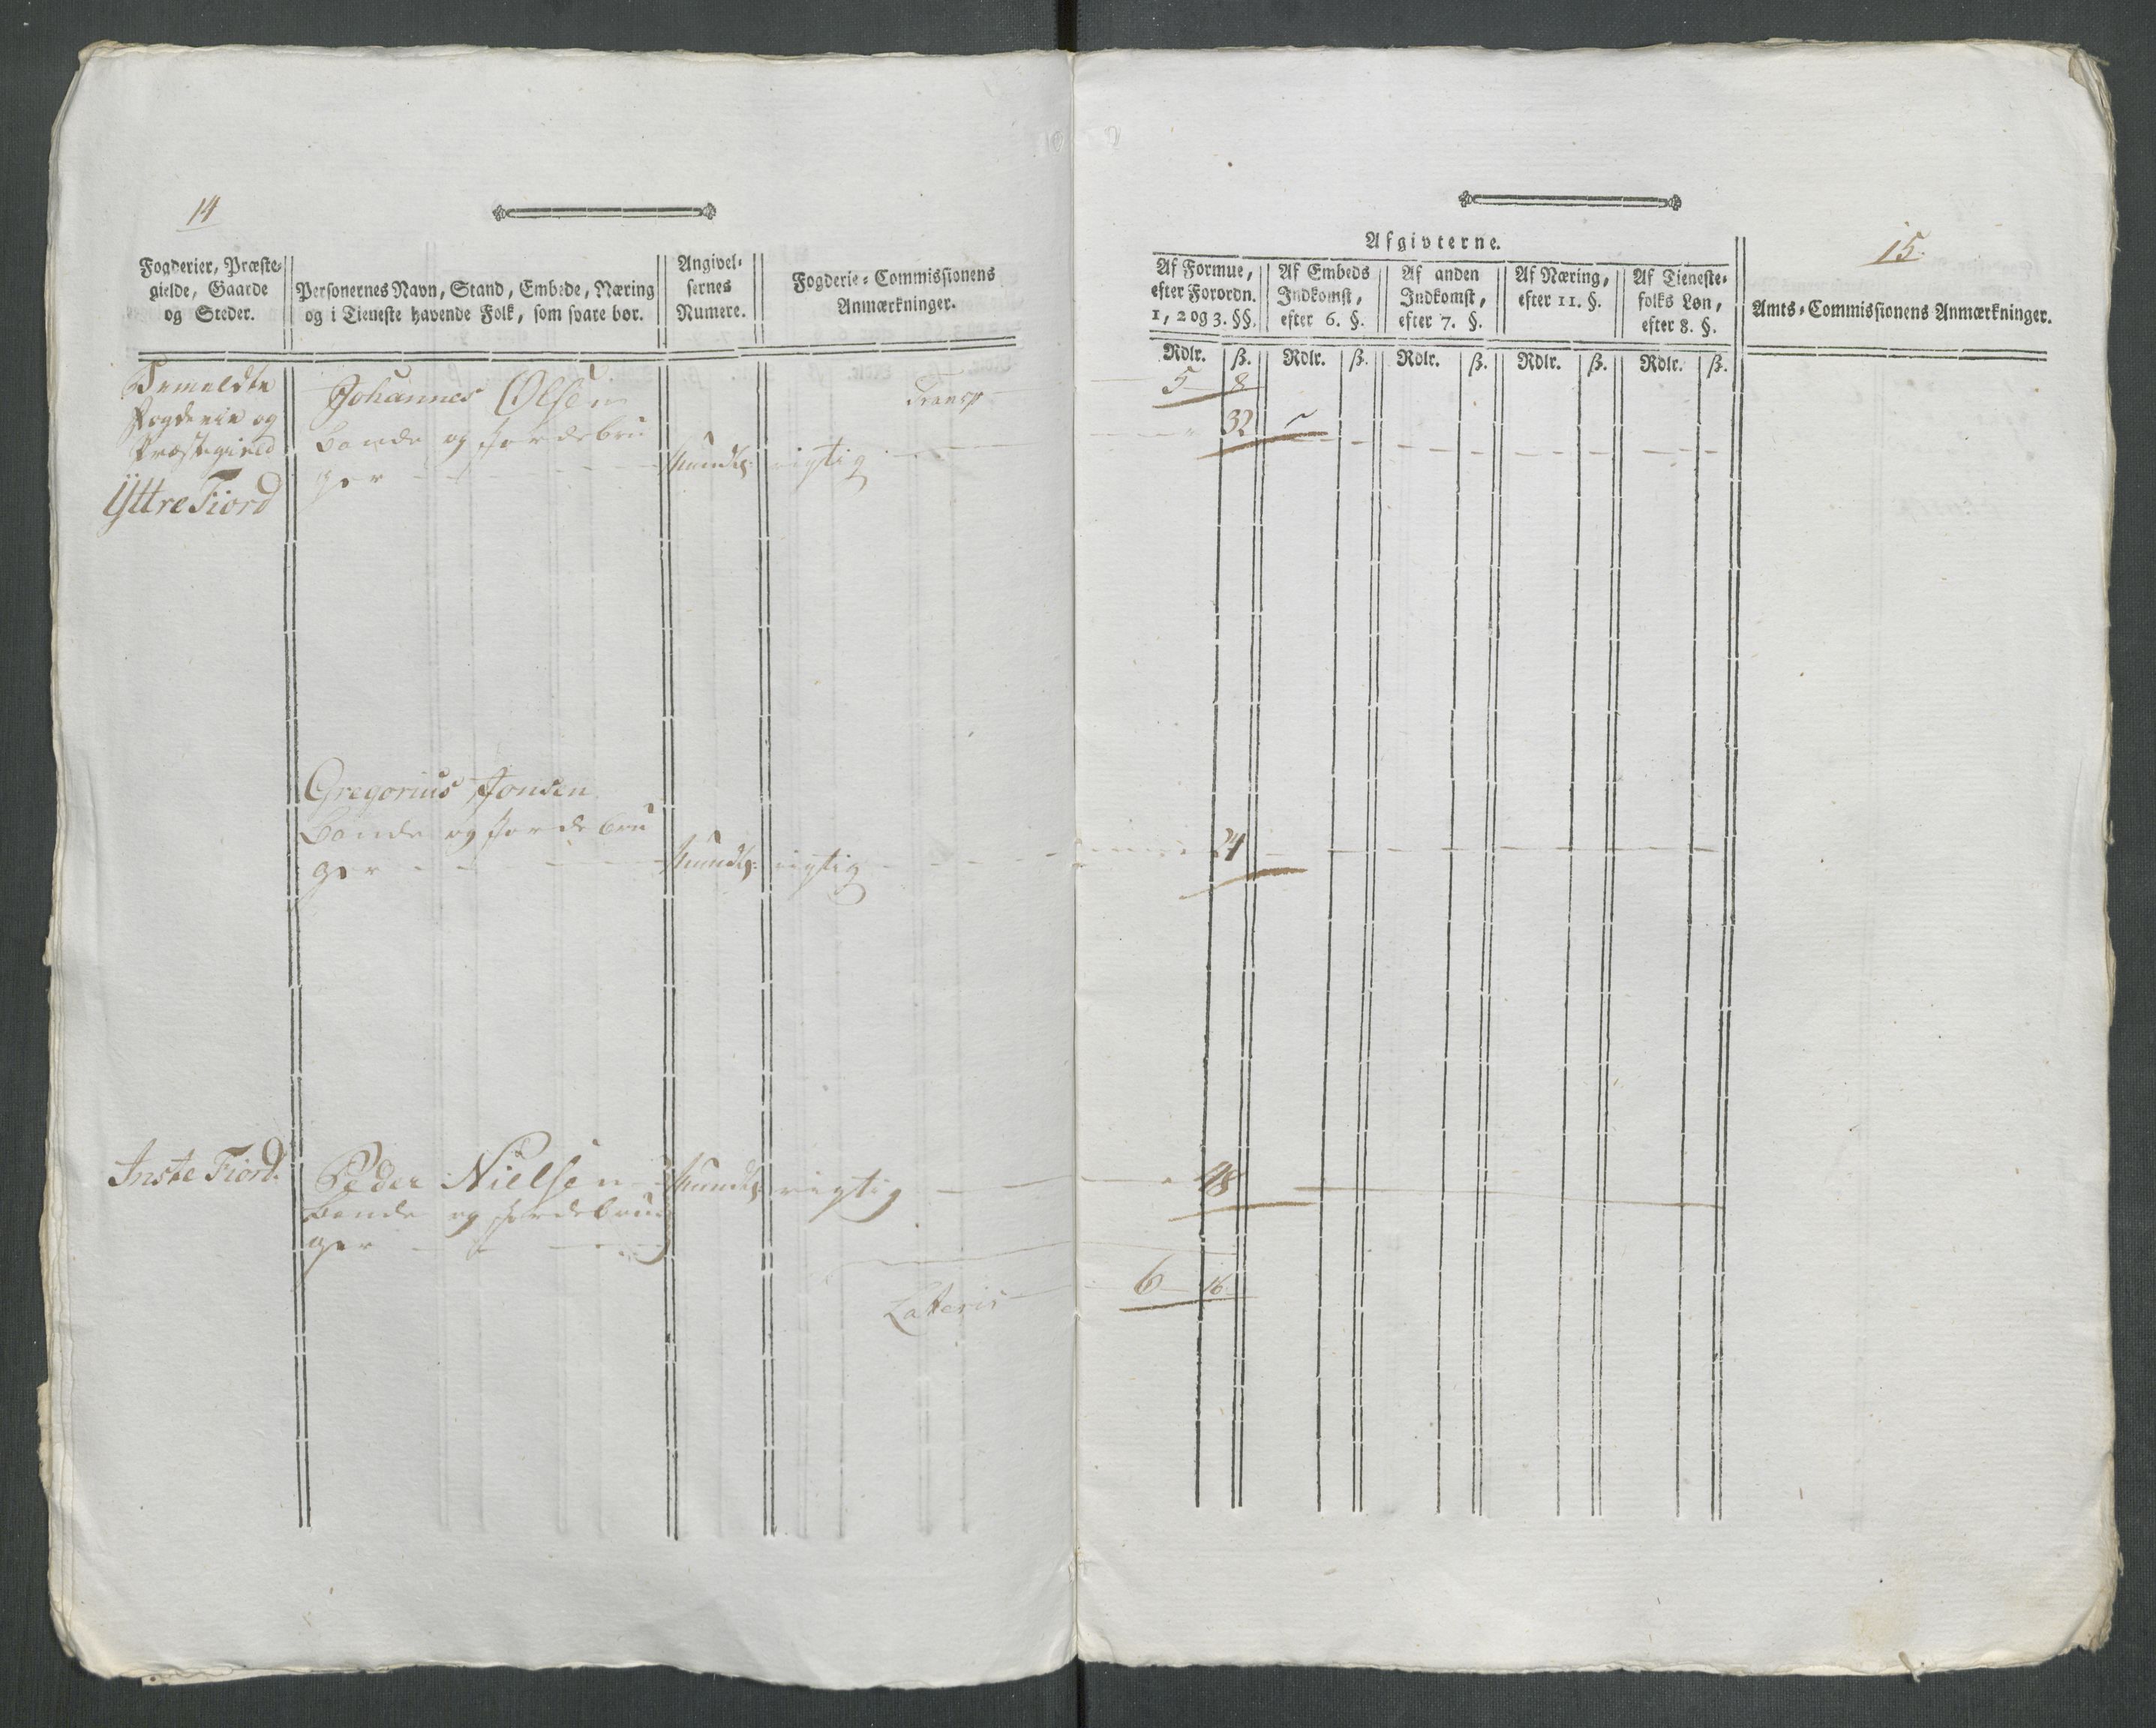 14
Fogderier, Præste-
gielde, Gaarde
og Steder.
Personernes Navn, Stand, Embede, Næring
og i Tieneste havende Folk, som svare bør.
Angivel-
sernes
Numere.
Fogderie-Commissionens
Anmærkninger.
Bemeldte
Fogderie og
Præstegield
Yttre Fiord
Johannes Olsen
Bonde og Jordebru
ger
Mundtl:
rigtig
Transp
Gregorius Jonsen
Bonde og Jordebru
ger
Mundtl:
rigtig
Inste Fiord.
Peder Nielsen
Bonde og Jordebru
ger
Mundtl:
rigtig
Latteris
15.
Afgivterne.
Af Formue,
efter Forordn.
1, 2 og 3. §§.
Af Embeds
Indkomst,
efter 6. §.
Af anden
Indkomst,
efter 7. §.
Af Næring,
efter 11. §.
Af Tieneste-
folks Løn,
efter 8. §.
Amts-Commissionens Anmærkninger.
Rdlr. ß. Rdlr. ß. Rdlr. ß. Rdlr. ß. Rdlr. ß.
5 8
32
24
48
6 16